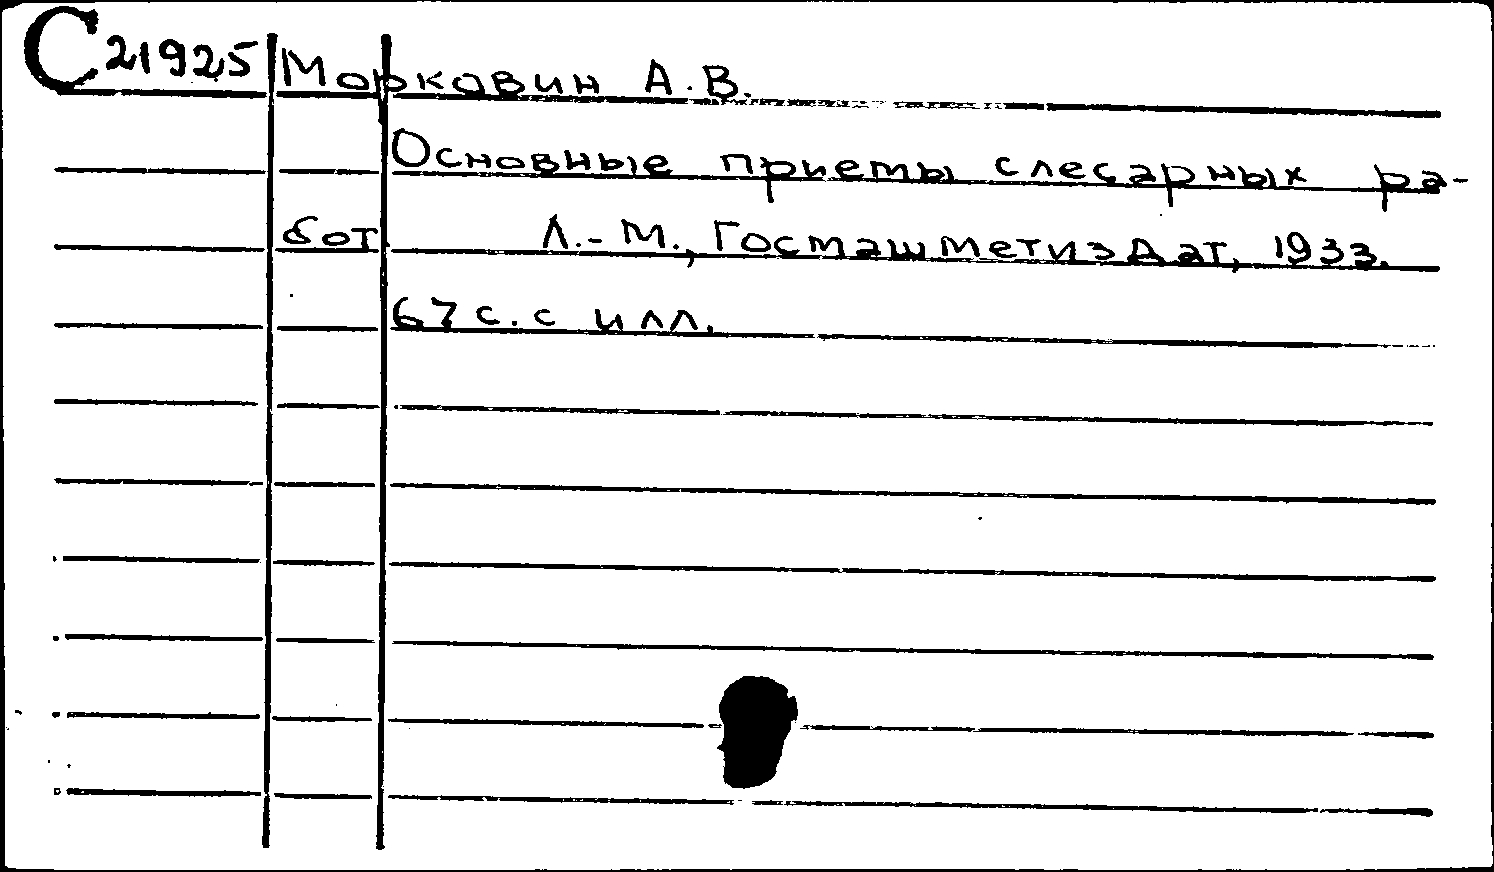 С21925 Морковин А.В.
Основные приемы слесарных ра-
бот Л.-М., Госмашметиздат, 1933.
67 с. с илл.